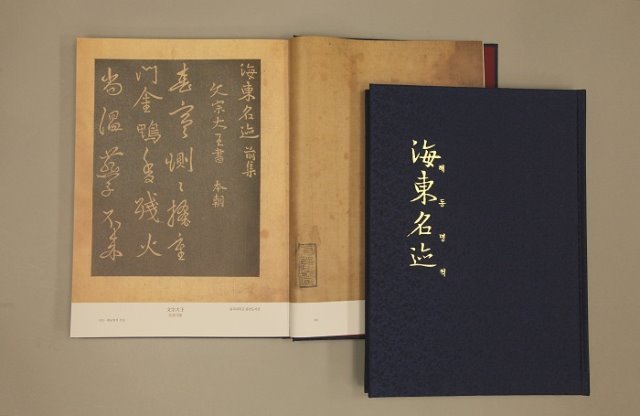 海東名迹 前集
文宗大王書 本朝
春寒惻〻掩重
門金鴨香殘火
尚溫燕子不來
文宗大王
海東名迹
해동명적